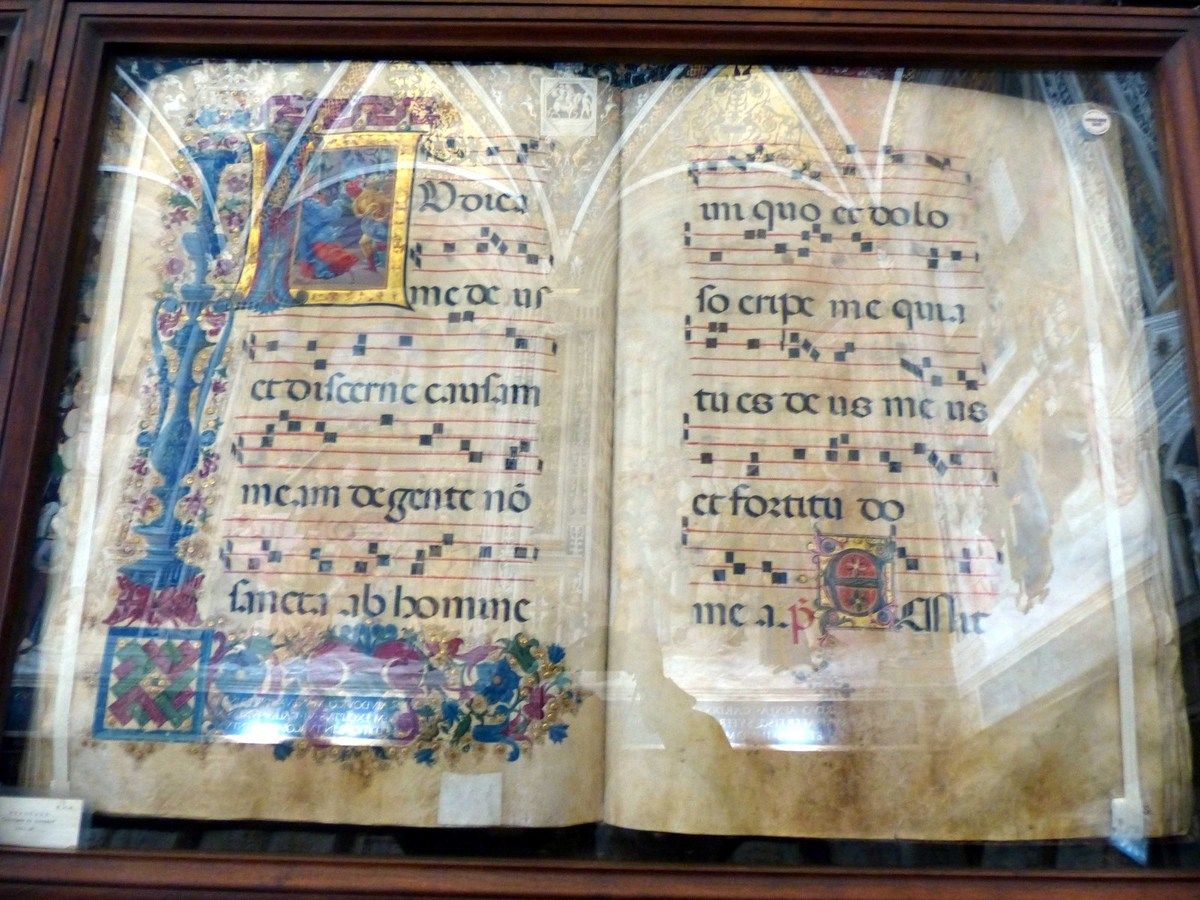 Iudica
me de us
et discerne causam
me am de gente nō
sancta ab homine
ini quo et dolo
so eripe me quia
tu es de us me us
et fortitu do
me a. p̄ Emit